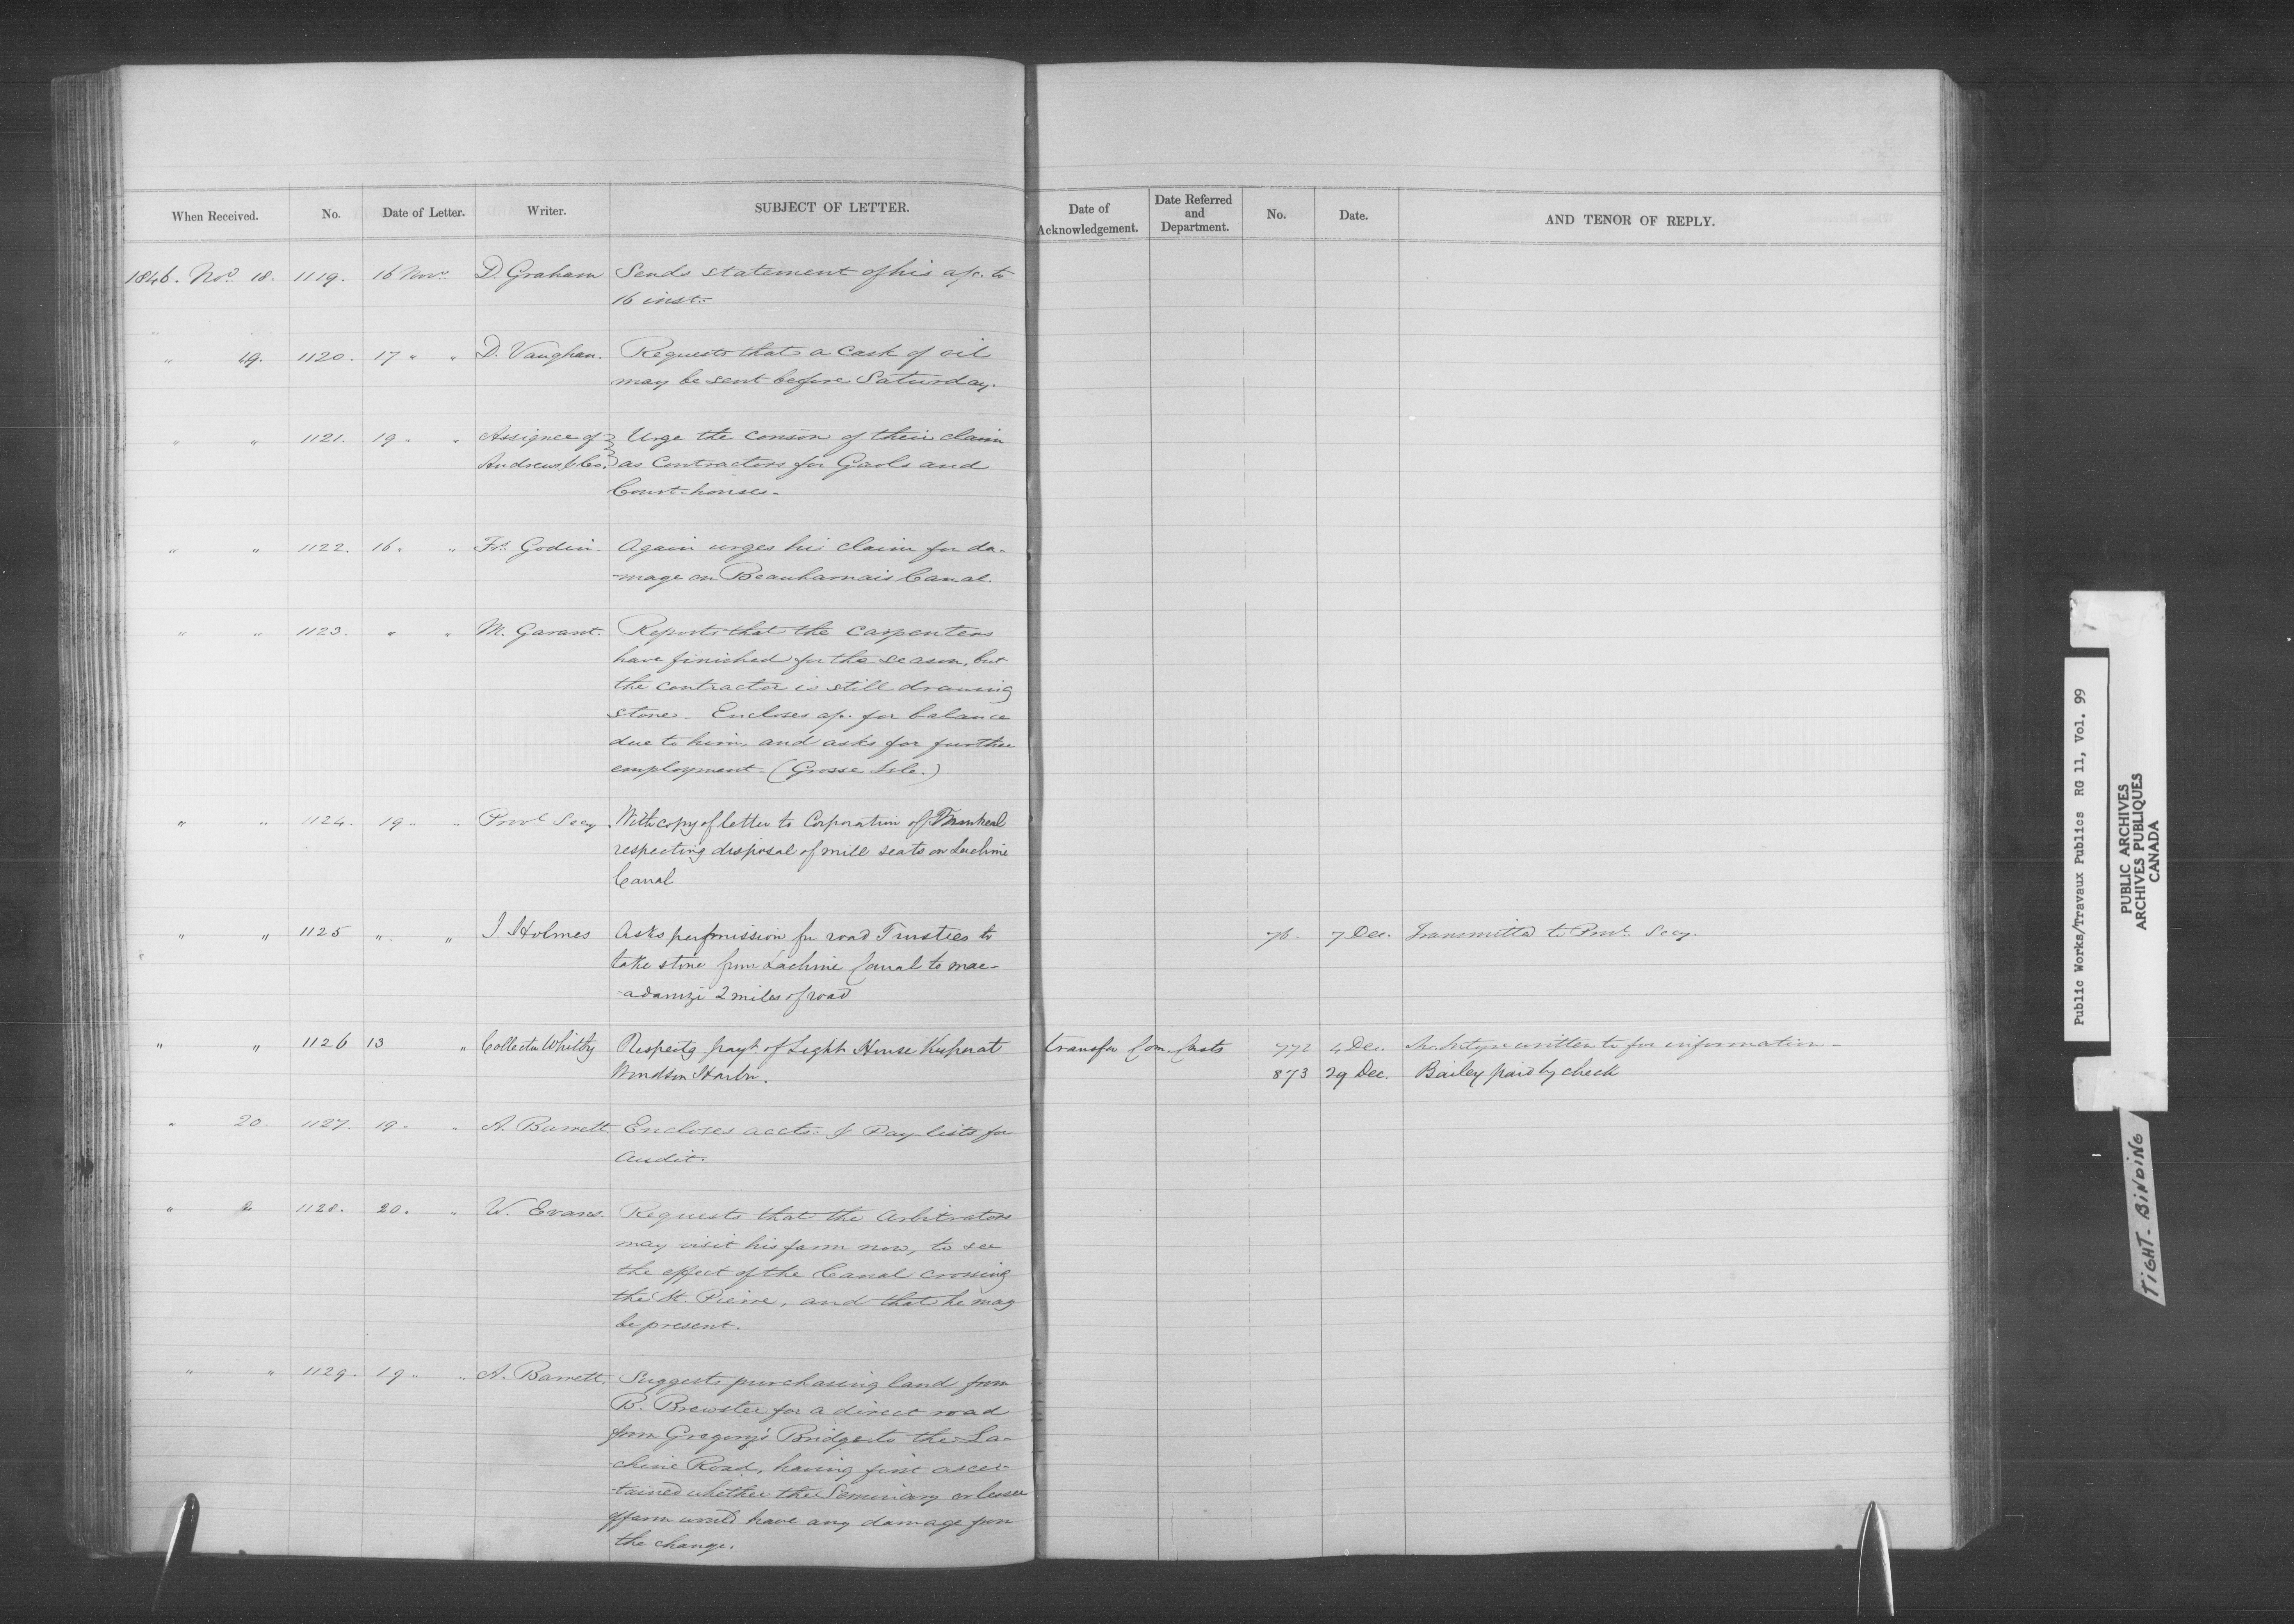 When Received. No. Date of Letter. Writer. SUBJECT OF LETTER.
Date of Acknowledgement. Date Referred and Department. No. Date. AND TENOR OF REPLY.
1846. Novr. 18. 1119. 16 Novr. D. Graham Sends statement of his a/c. to
16 inst.
" 19. 1120. 17 " " D. Vaughan. Requests that a Cask of oil
may be sent before Saturday.
" " 1121. 19 " " Assignee of Urge the conson of their claim
Andrews & Co. as Contractors for Gaols and
Court-houses.
" " 1122. 16 " " Frs. Godin. Again urges his claim for da-
-mage on Beauharnais Canal.
" " 1123. " " M. Garant. Reports that the carpenters
have finished for the season, but
the contractor is still drawing
stone - Encloses a/c. for balance
due to him, and asks for further
employment. (Grosse Isle.)
" " 1124. 19 " " Provl. Secy. With copy of letter to Corporation of Montreal
respecting disposal of mill seats on Lachine
Canal
" " 1125 " " J. Holmes Asks permission for road Trustees to 76. 7 Dec. Transmitted to Provl. Secy.
take stone from Lachine Canal to mac-
-adamize 2 miles of road
" " 1126 13 " Collector Whitby Respectg payt. of Light House Keeper at transfer Com. Casts 772 4 Dec. written to for information -
Windsor Harbr. 873 29 Dec. Bailey paid by check
" 20. 1127. 19 " " A. Barrett. Encloses accts. & Pay-lists for
Audit.
" " 1128. 20. " W. Evans. Requests that the Arbitrators
may visit his farm now, to see
the effect of the Canal crossing
the St. Pierre, and that he may
be present.
" " 1129. 19 " " A. Barrett. Suggests purchasing land from
B. Brewster for a direct road
from Gregory's Bridge to the La-
chine Road, having first ascer-
tained whether the Seminary or lessee
of farm would have any damage from
the change.
Public Works/Travaux Publics RG 11, Vol. 99
PUBLIC ARCHIVES
ARCHIVES PUBLIQUES
CANADA
TIGHT-BINDING